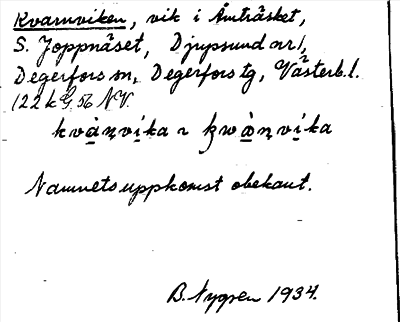 Kvarnviken, vik i Åmträsket,
S. Joppnäset, Djupsund nr 1,
Degerfors sn, Degerfors tg, Västerb. l.
122 k G. 56 NV.
kvànvika ~ kwànvika
Namnets uppkomst obekant.
B. Nygren 1934.